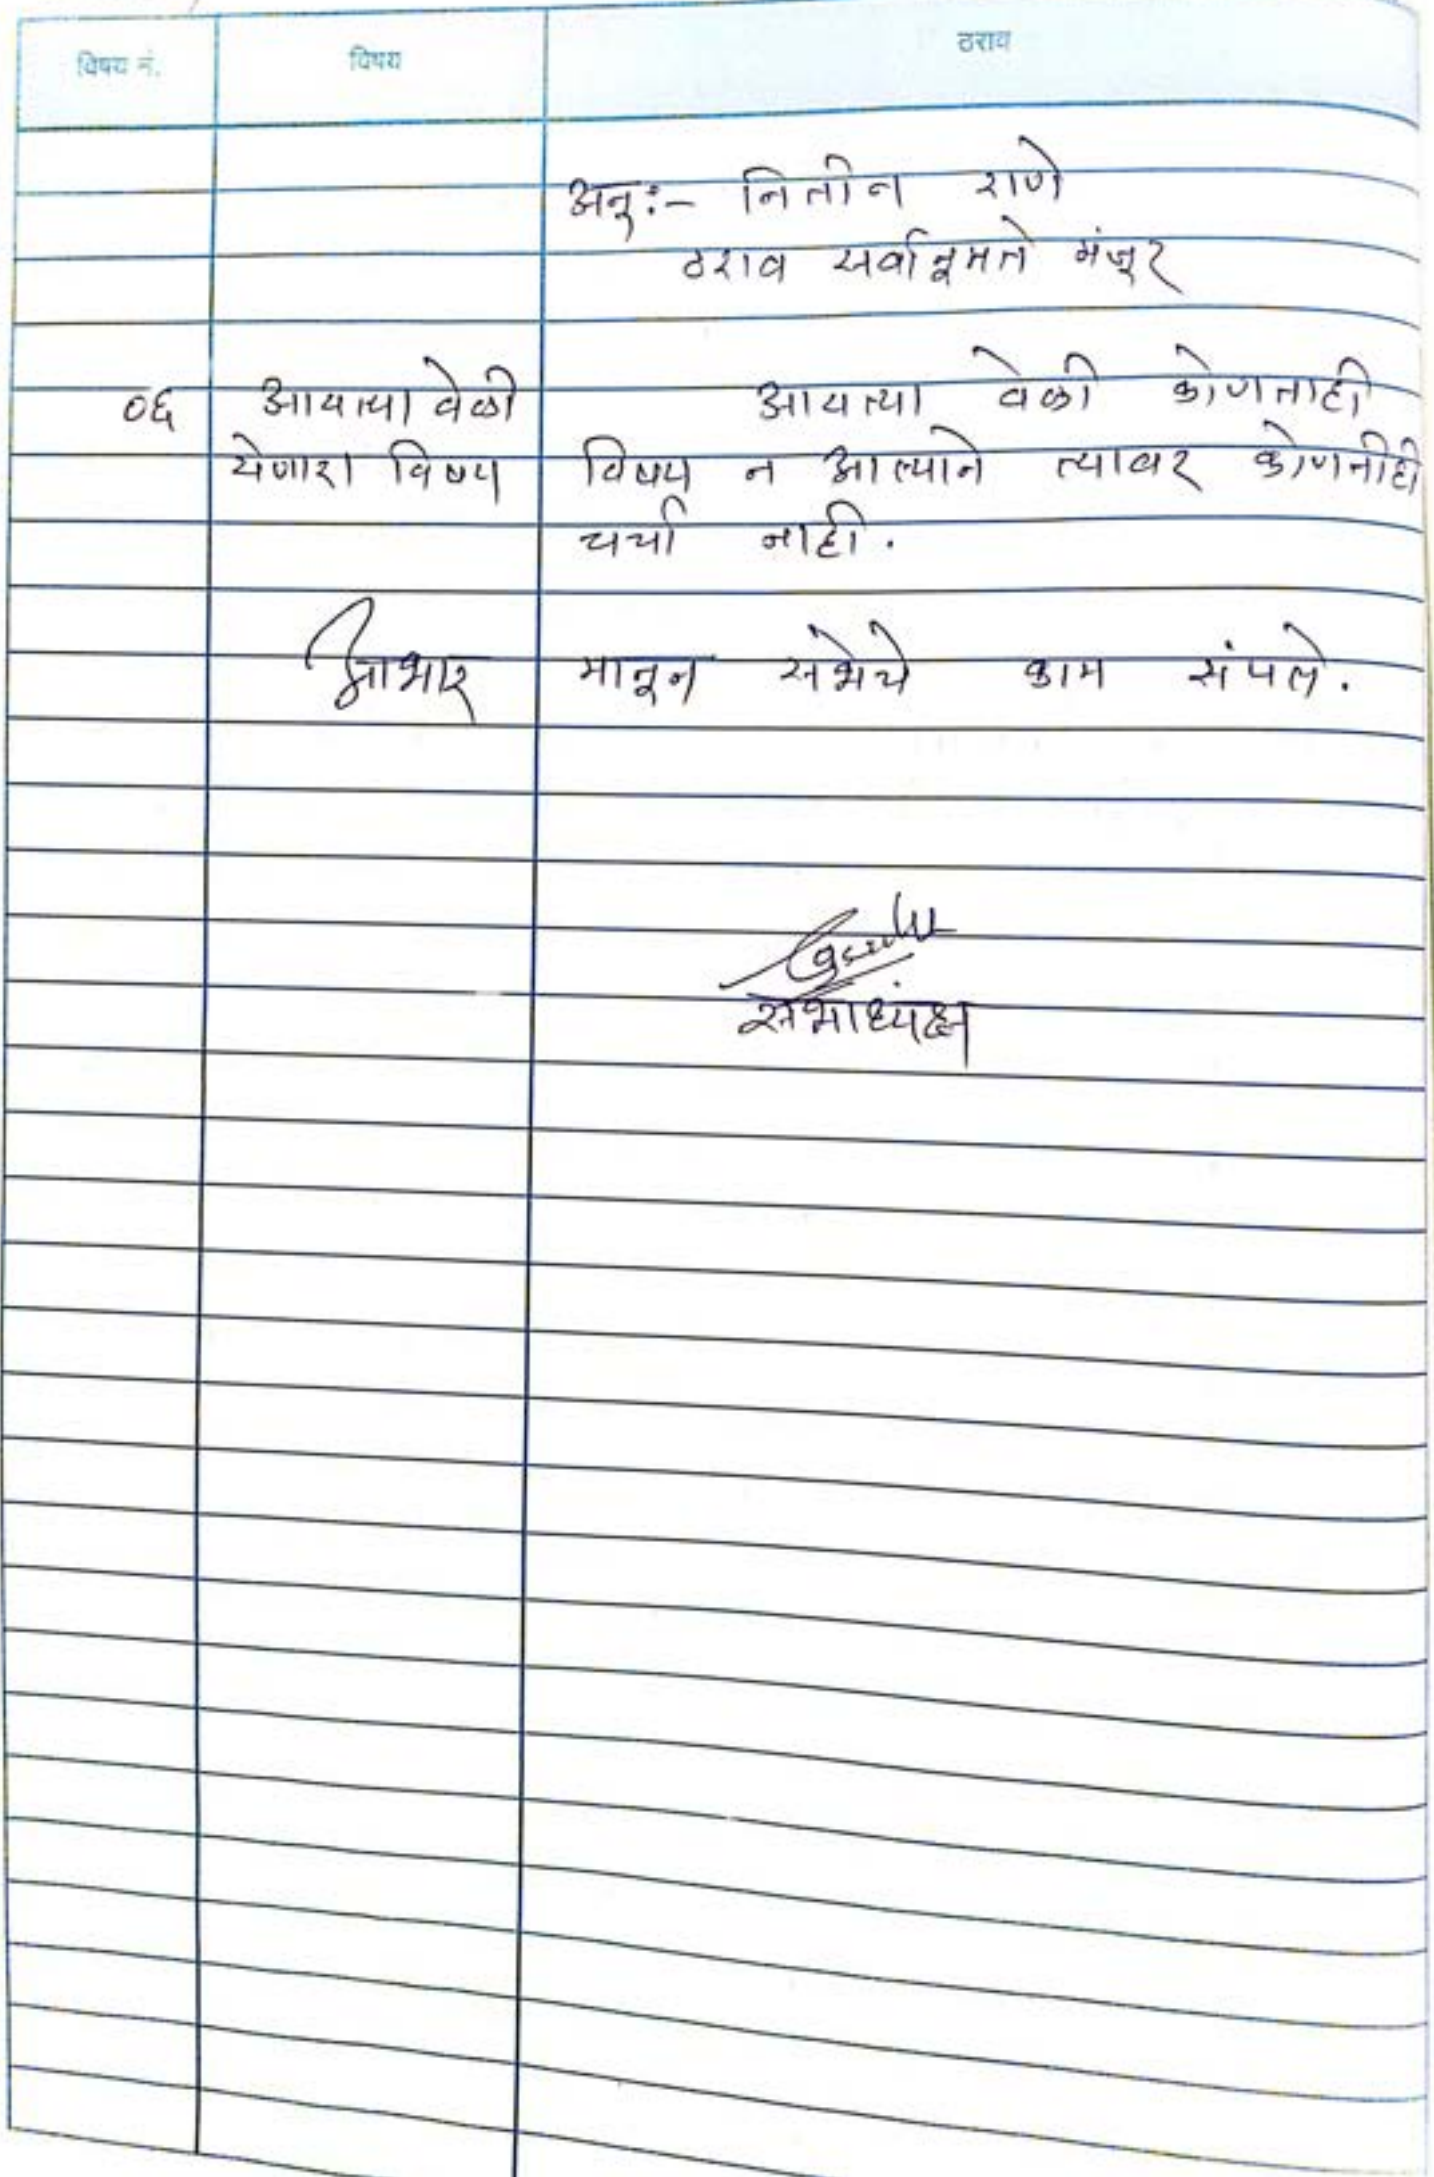 विषय नं. विषय ठराव
अनु:- नितीन राणे
ठराव सर्वानूमते मंजूर
०६ आयत्या वेळी आयत्या वेळी कोणताही
येणारा विषय विषय न आल्याने त्यावर कोणतीही
चर्चा नाही.
आभार मानून सभेचे काम संपले.
सभाध्यंक्ष